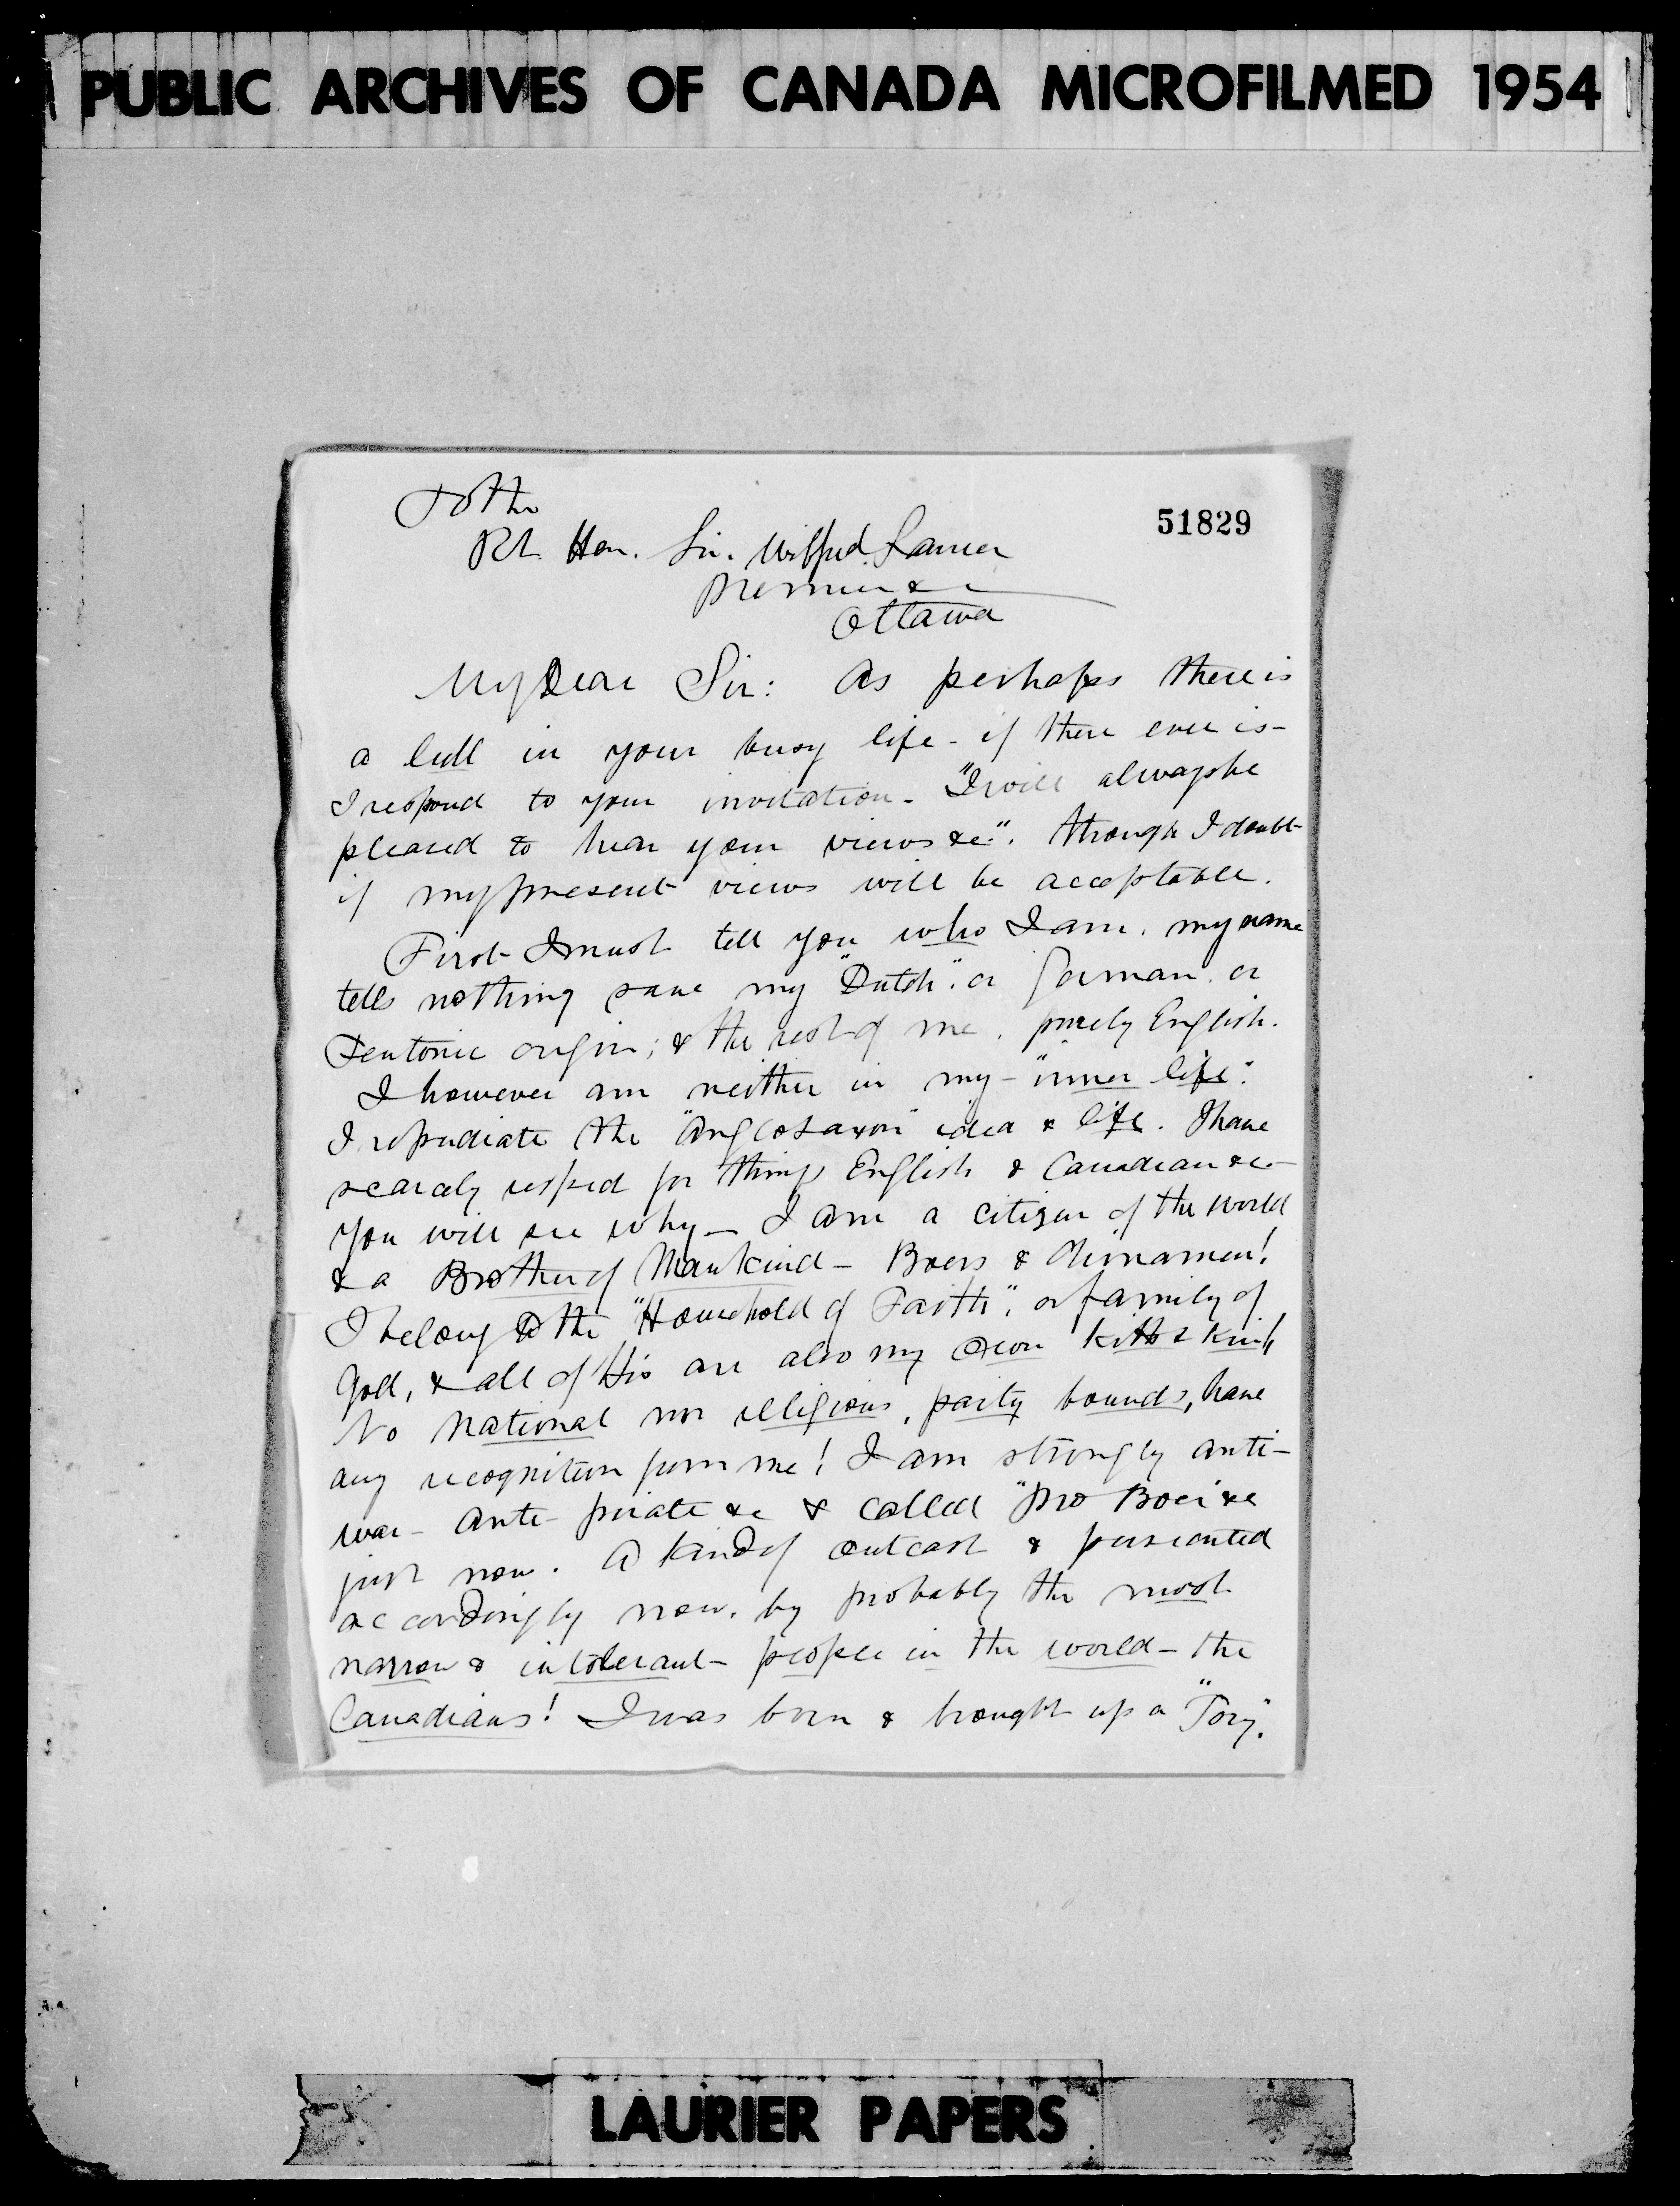 PUBLIC ARCHIVES OF CANADA MICROFILMED 1954
To the
51829
Rt. Hon. Sir. Wilfrid Laurier
Premier &c
Ottawa
My Dear Sir: As perhaps there is
a lull in your busy life - if there ever is -
I respond to your invitation - "I will always be
pleased to hear your views &c". though I doubt
if my present views will be acceptable.
First I must tell you who I am. my name
tells nothing save my "Dutch" or German or
Teutonic origin; & the rest of me. purely English.
I however am neither in my - "inner life".
I repudiate the "Anglosaxon" idea & life. I have
scarcely respect for things English & Canadian &c -
You will see why - I am a citizen of the World
& a Brother of Mankind - Boers & Chinamen!
I belong to the "Household of Faith", or family of
God, & all of His are also my own kith & kin
No National nor religious, party bounds, have
any recognition from me! I am strongly anti-
war - anti - pirate &c & called "Pro Boer &c
just now. A kind of outcast & persecuted
accordingly now. by probably the most
narrow & intolerant - people in the world - the
Canadians! I was born & brought up a "Tory".
LAURIER PAPERS